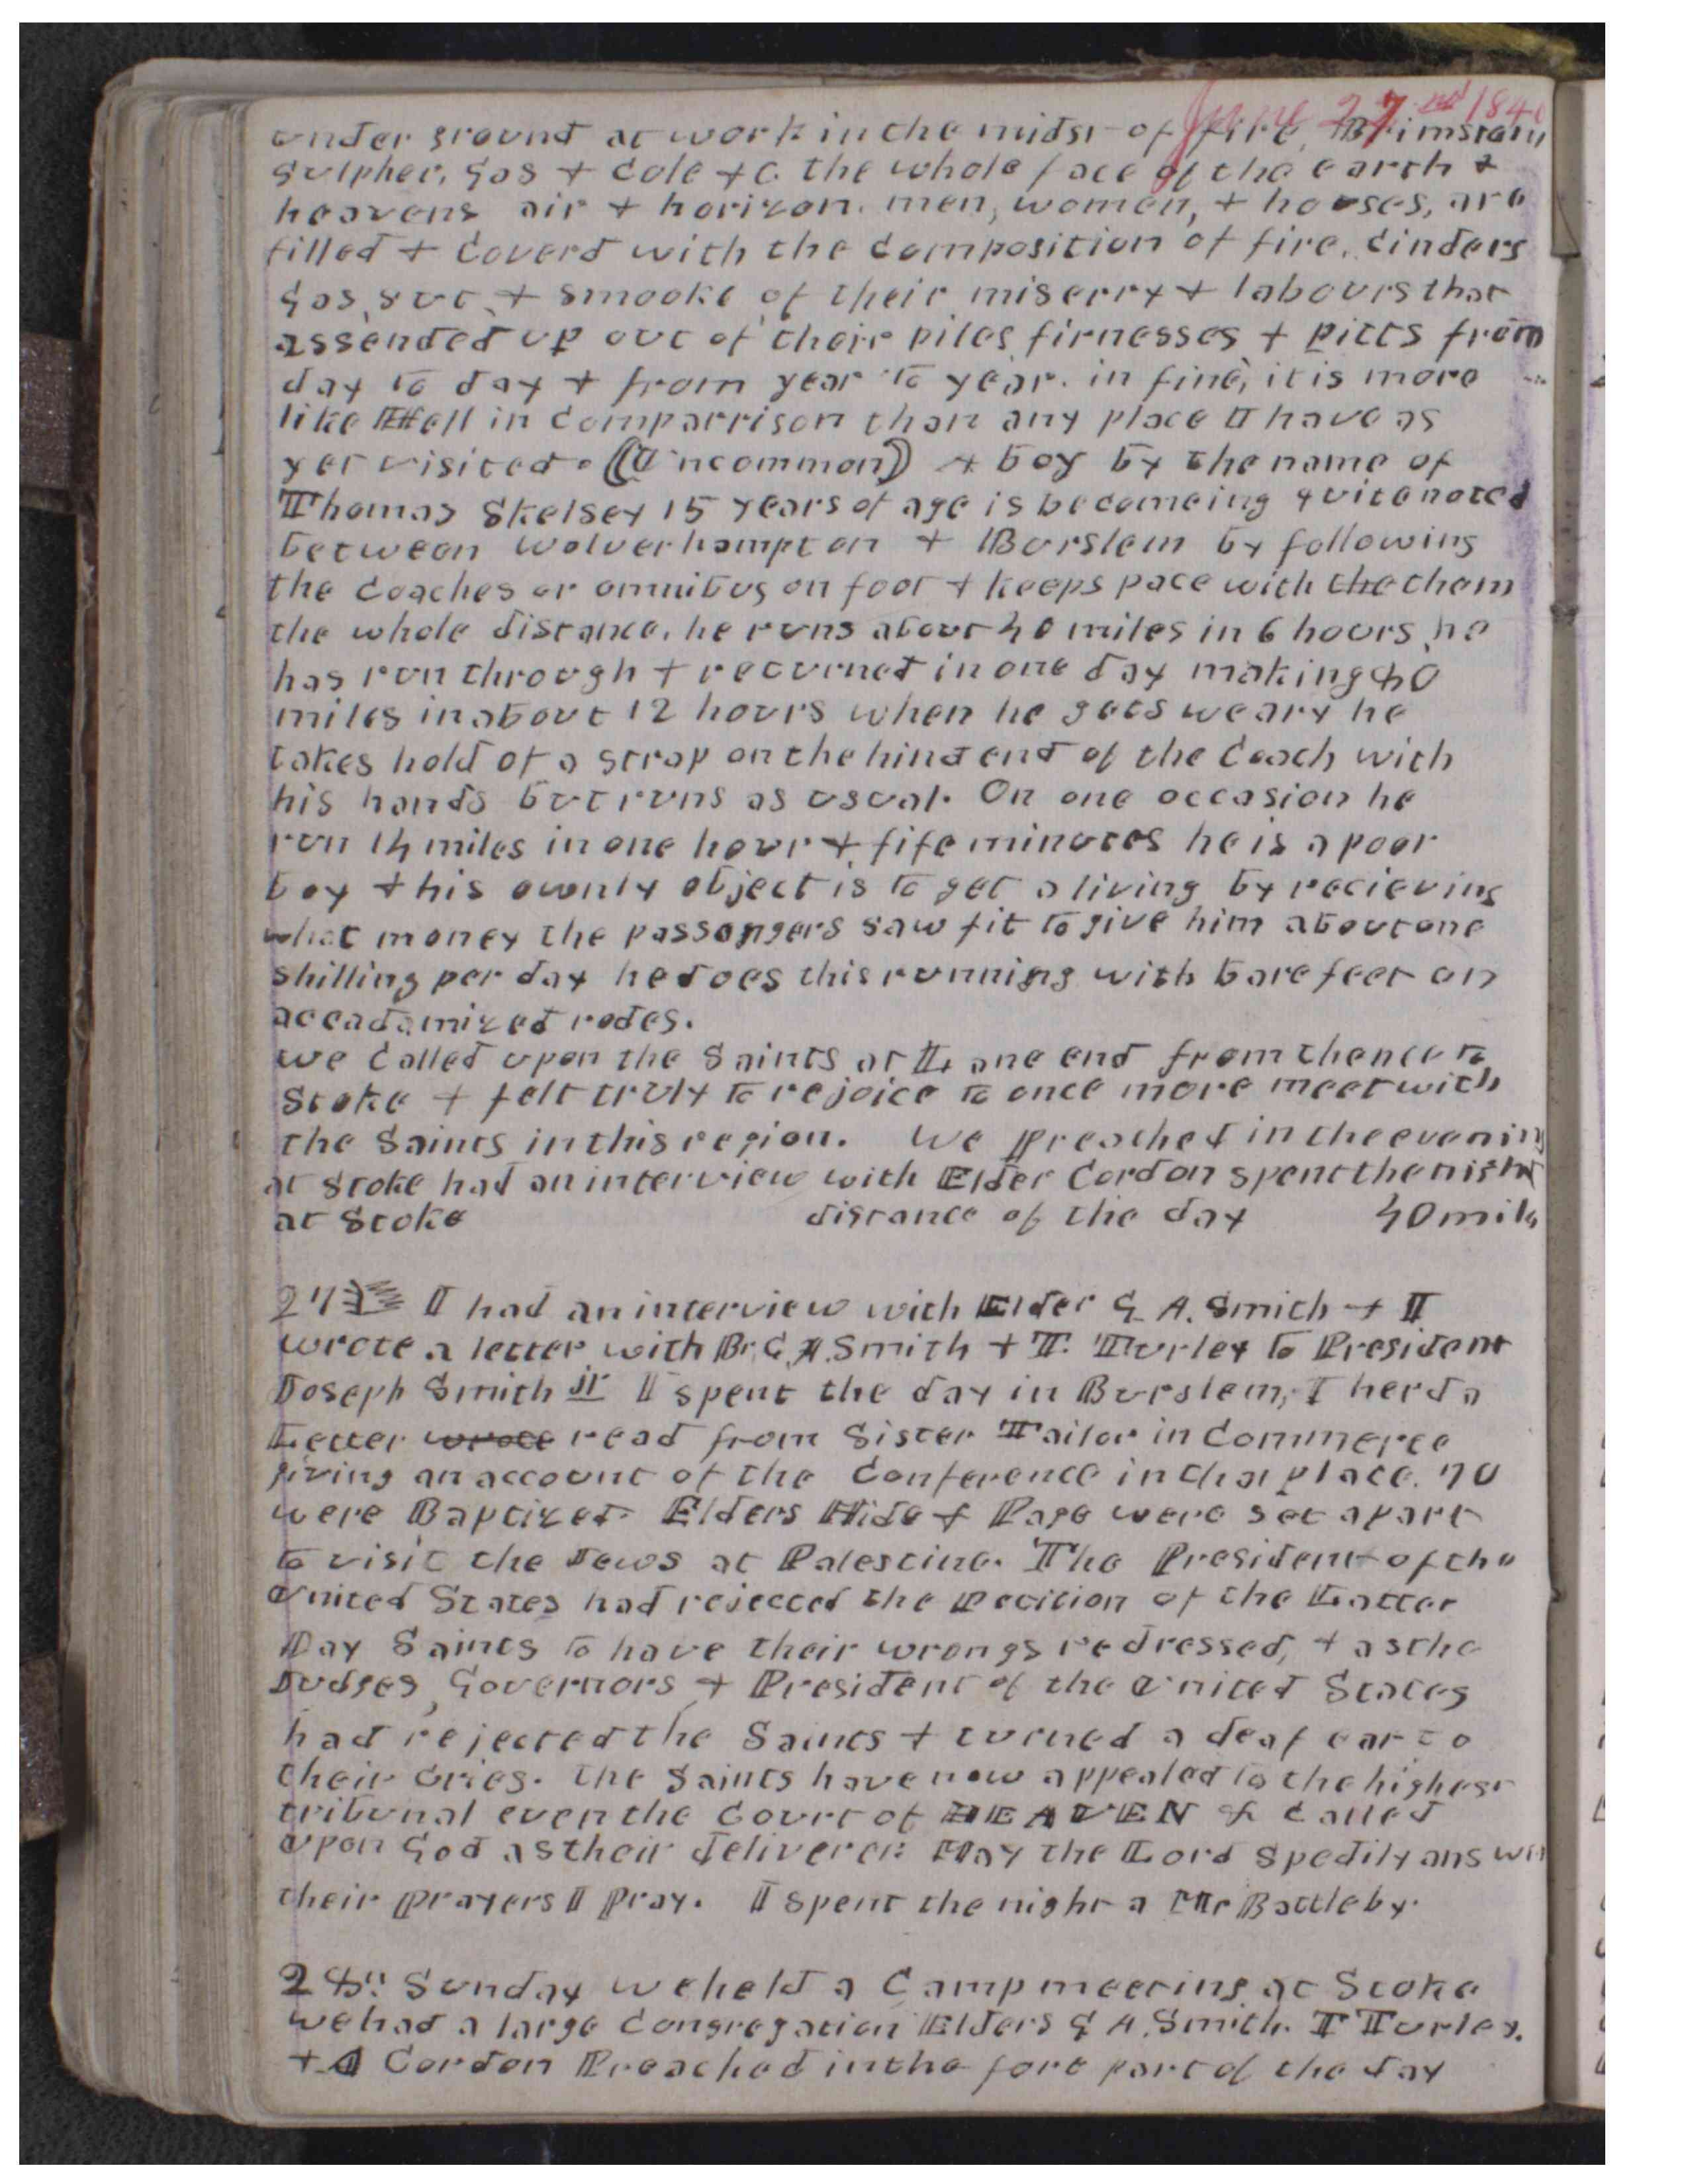 June 27nd 1840
under ground at work in the midst of fire, Brimstom
sulpher, gas + Cole +c. the whole face of the earth +
heavens air + horizon. men, women, + houses, are
filled + Coverd with the composition of fire. Cinders
gas, sut, + smooke of their miserry + labours that
assended up out of their piles firnesses + pitts from
day to day + from year to year. in fine, it is more
like Hell in Comparrison than any place I have as
yet visited. (Uncommon) A boy by the name of
Thomas Skelsey 15 years of age is becomeing quite noted
between wolverhampton + Burslem by following
the Coaches or omnibus on foot + keeps pace with the them
the whole distance. he runs about 40 miles in 6 hours, he
has run through + returned in one day making 80
miles in about 12 hours when he gets weary he
takes hold of a strap on the hind end of the Coach with
his hands but runs as usual. On one occasion he
run 14 miles in one hour + fife minutes he is a poor
boy + his ownly object is to get a living by recieving
what money the passongers saw fit to give him about one
shilling per day he does this running with bare feet on
accadamized rodes.
we Called upon the Saints at Lane end from thence to
Stoke + felt truly to rejoice to once more meet with
the Saints in this region. We preached in the evening
at Stoke had an interview with Elder Cordon spent the night
at Stoke distance of the day 40 mils
27 I had an interview with Elder G. A. Smith + I
wrote a letter with Br. G. A. Smith + T. Turley to President
Joseph Smith jr I spent the day in Burslem, I herd a
Letter wrote read from Sister Tailor in Commerce
giving an account of the Conference in that place. 70
were Baptized. Elders Hide + Page were set apart
to visit the Jews at Palestine. The President of the
United States had rejected the Petition of the Latter
Day Saints to have their wrongs redressed, + as the
Judges, Governors + President of the United States
had rejected the Saints + turned a deaf ear to
their cries. the Saints have now appealed to the highest
tribunal even the Court of HEAVEN & Called
upon God as their deliverer: May the Lord Spedily answer
their prayers I Pray. I spent the night a Mr Battleby.
28" Sunday we held a Camp meeting at Stoke
we had a large Congregation Elders G A. Smith. T Turley.
+ A Cordon Preached in the fore part of the day